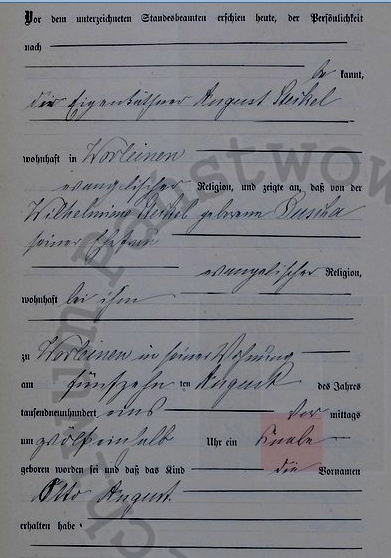 Vor dem unterzeichneten Standesbeamten erschien heute, der Persönlichkeit
nach
be kannt,
der Eigenkäthner August
wohnhaft in Worleinen
evanglischer Religion, und zeigte an, daß von der
Wilhelmine geborene
seiner Ehefrau
evangelischer Religion,
wohnhaft bei ihm
zu Worleinen in seiner Wohnung
am fünfzehn ten August des Jahres
tausendneunhundert eins Vor mittags
um zwölfeinhalb Uhr ein Knabe
geboren worden sei und daß das Kind die Vornamen
Otto August.
erhalten habe.